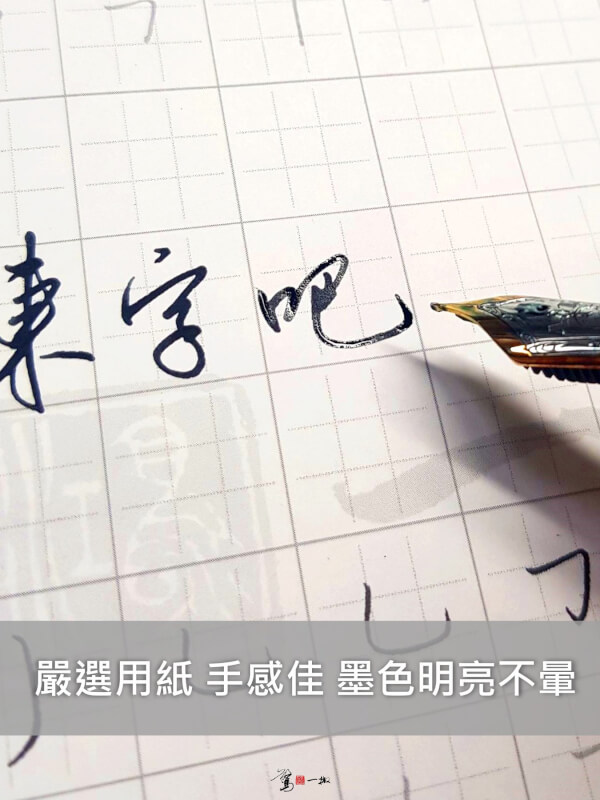 字吧
嚴選用紙 手感佳 墨色明亮不暈